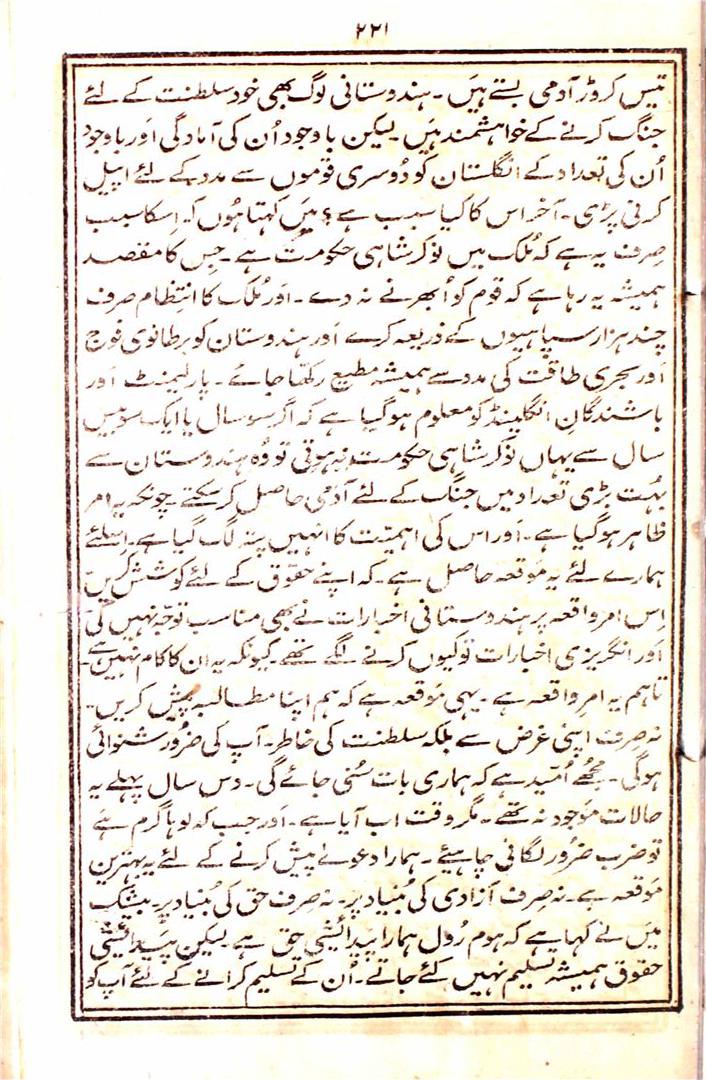 ۲۲۱
تیس کروڑ آدمی بستے ہیں۔ ہندوستانی لوگ بھی خود سلطنت کے لئے
جنگ کرنے کے خواہشمند ہیں۔ لیکن باوجود اُن کی آمادگی اَور باوجود
اُن کی تعداد کے انگلستان کو دُوسری قوموں سے مدد کے لئے اپیل
کرنی پڑی۔ آخر اس کا کیا سبب ہے؟ میں کہتا ہُوں کہ اِسکا سبب
صِرف یہ ہے کہ مُلک میں نوکر شاہی حکومت ہے۔ جِس کا مقصد
ہمیشہ یہ رہا ہے کہ قوم کو اُبھرنے نہ دے۔ اَور مُلک کا انتظام صرف
چند ہزار سپاہیوں کے ذریعہ کرے اَور ہندوستان کو برطانوی فوج
اَور بحری طاقت کی مدد سے ہمیشہ مطیع رکھا جائے۔ پارلیمنٹ اَور
باشندگانِ انگلینڈ کو معلوم ہوگیا ہے کہ اگر سو سال یا ایک سو بیس
سال سے یہاں نوکر شاہی حکومت نہ ہوتی تو وُہ ہندوستان سے
بہُت بڑی تعداد میں جنگ کے لئے آدمی حاصل کر سکتے۔ چونکہ یہ امر
ظاہر ہوگیا ہے۔ اَور اس کی اہمیّت کا انہیں پتہ لگ گیا ہے۔ اِسلئے
ہمارے لئے یہ مَوقعہ حاصل ہے۔ کہ اپنے حقوق کے لئے کوشش کریں
اِس امر واقعہ پر ہندوستانی اخبارات نے بھی مناسب توجّہ نہیں کی
اَور انگریزی اخبارات تو کیوں کرنے لگے تھے۔ کیونکہ یہ ان کا کام نہیں ہے۔
تاہم یہ امرِ واقعہ ہے۔ یہی مَوقعہ ہے کہ ہم اپنا مطالبہ پیش کریں۔
نہ صِرف اپنی غرض سے بلکہ سلطنت کی خاطر۔ آپ کی ضرُور شنوائی
ہوگی۔ مُجھے اُمّید ہے کہ ہماری بات سُنی جائے گی۔ دس سال پہلے یہ
حالات مَوجود نہ تھے۔ مگر وقت اب آیا ہے۔ اَور جب کہ لوہا گرم ہے
تو ضرب ضرُور لگانی چاہیئے۔ ہمارا دعوےٰ پیش کرنے کے لئے یہ بہترین
مَوقعہ ہے۔ نہ صِرف آزادی کی بُنیاد پر۔ نہ صِرف حق کی بُنیاد پر۔ بیشک
میں نے کہا ہے کہ ہوم رُول ہمارا پیدائشی حق ہے۔ لیکن پیدائشی
حقوق ہمیشہ تسلیم نہیں کئے جاتے۔ اُن کے تسلیم کرانے کے لئے آپ کو